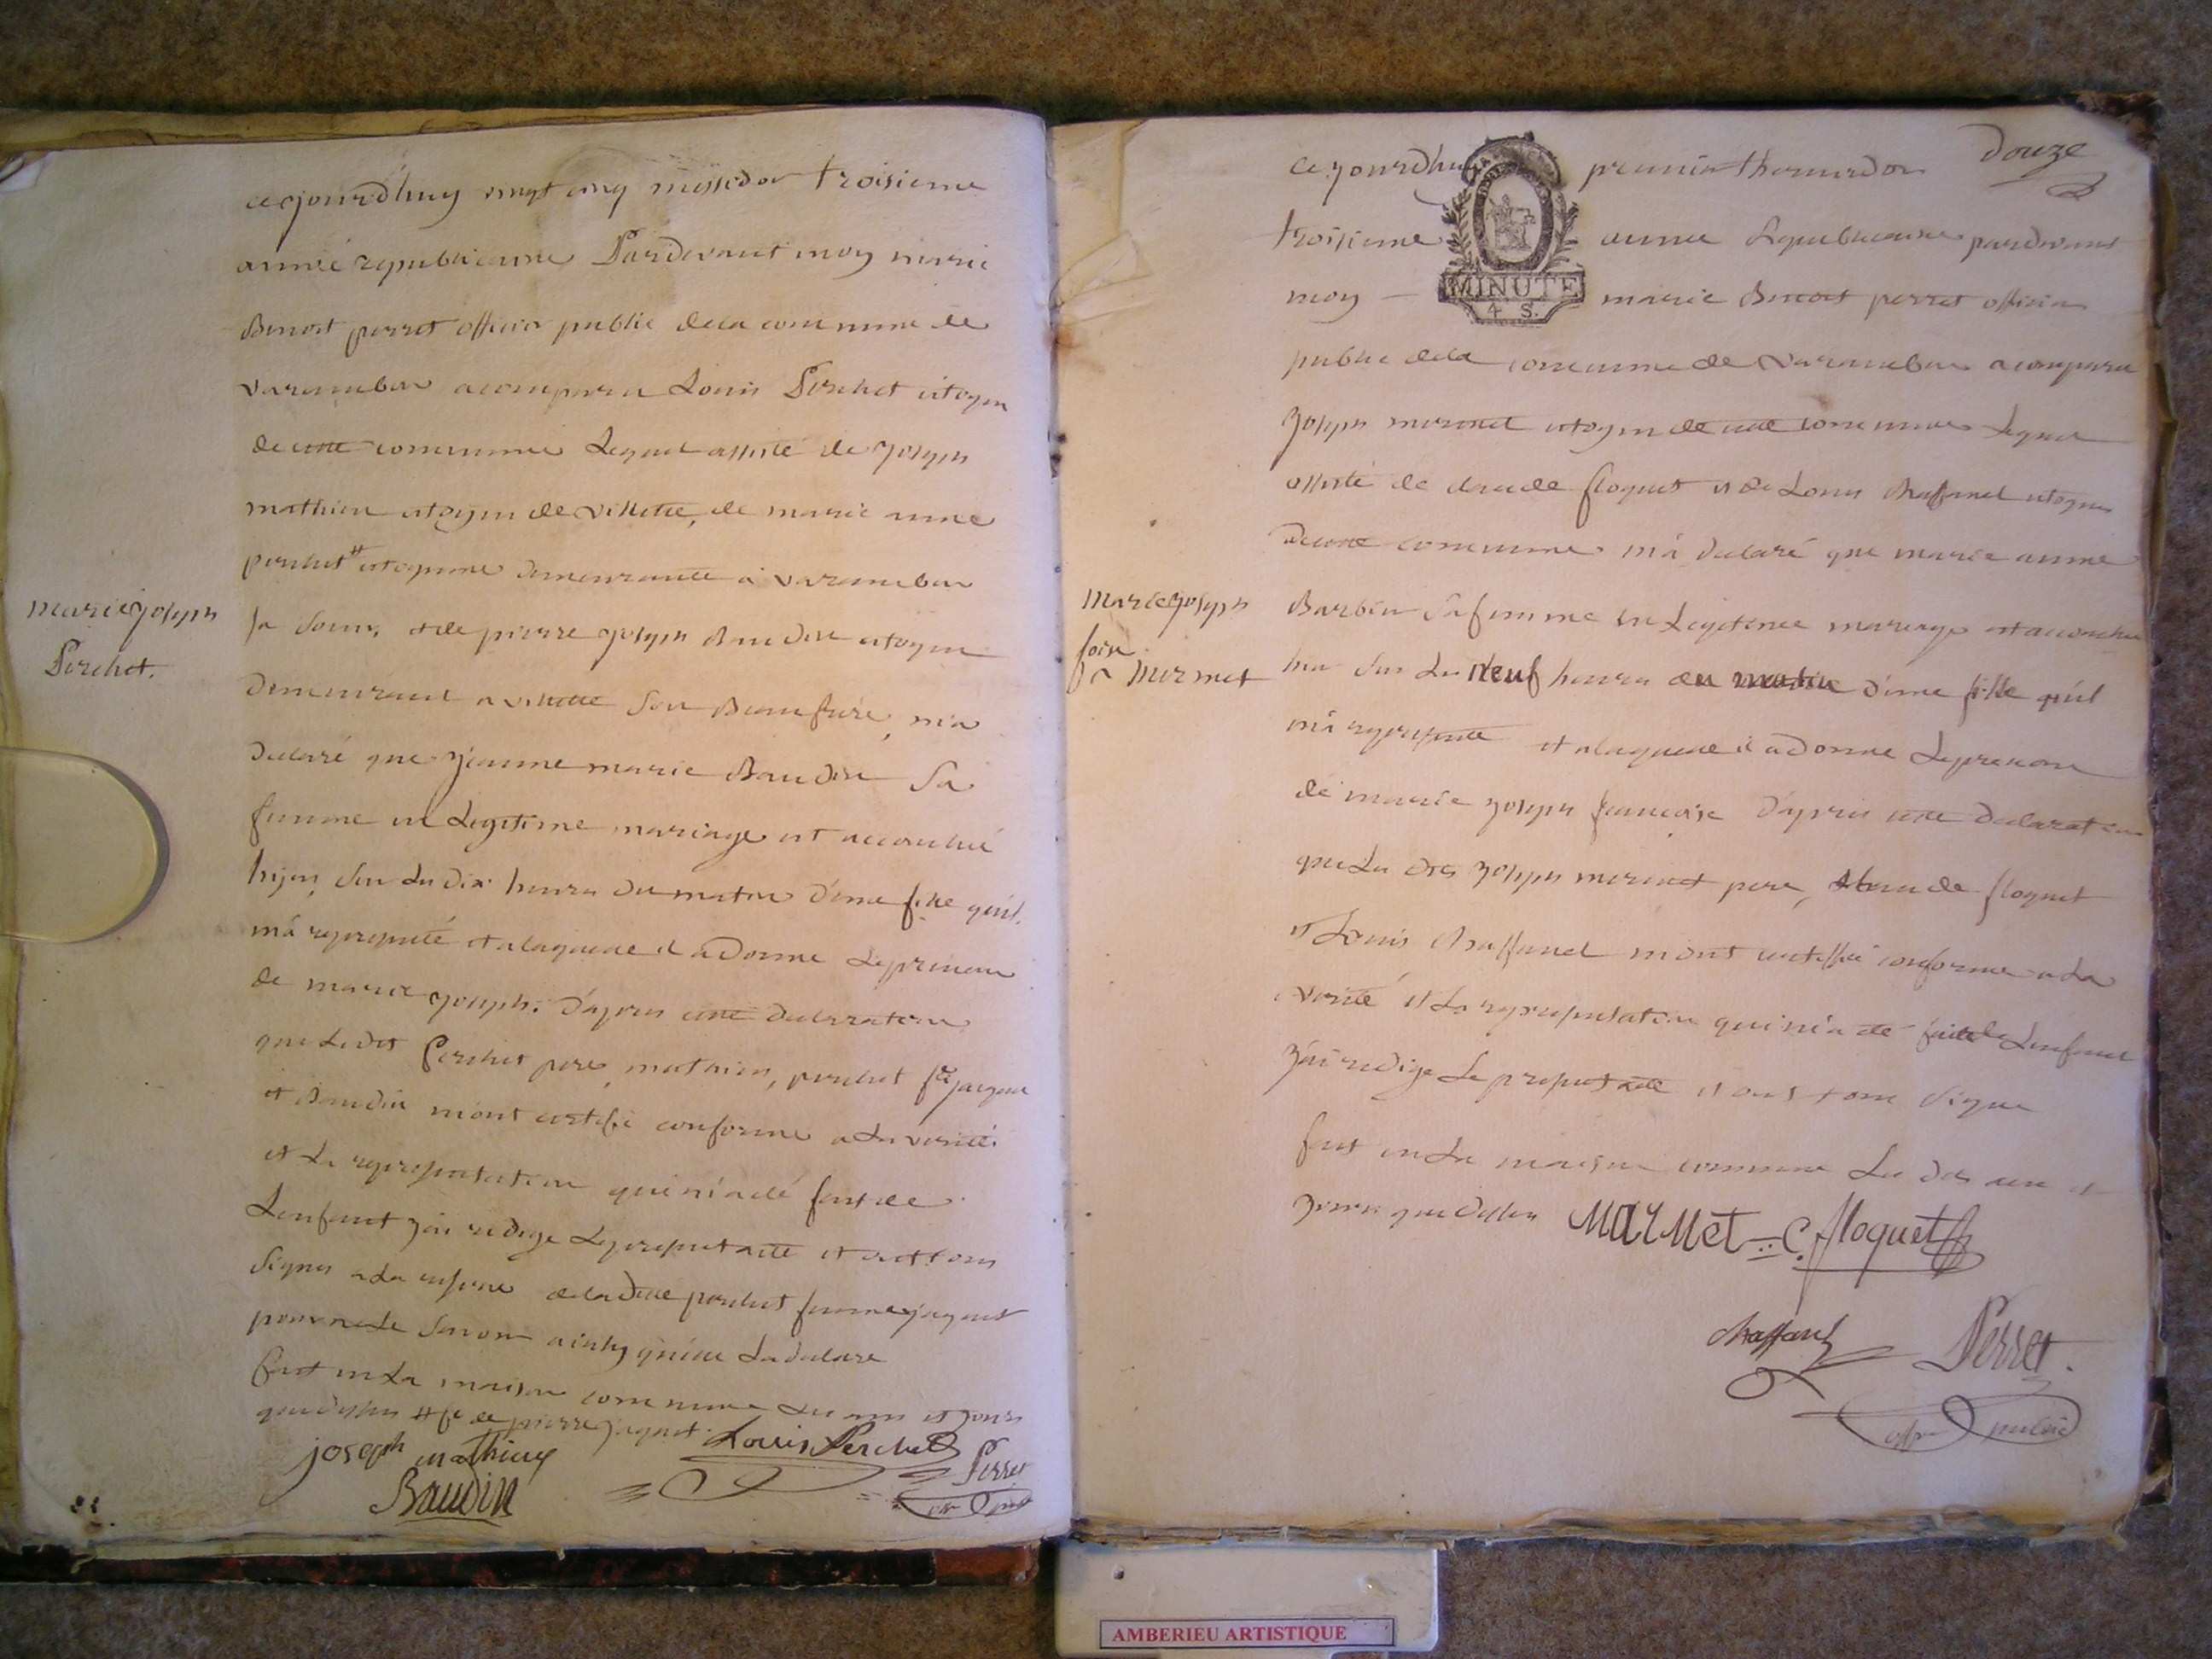 ce jourdhuy vingt cinq messidor troisieme
année republicaine Pardevant moy marie
Benoit perret officier public dela commune de
varambon a comparu Louis Perchet citoyen
de cette commune Lequel assisté de joseph
mathieu citoyen de villette, de marie anne
perchet # citoyenne demeurante a varambon
sa soeur, et de pierre joseph Baudin citoyen
demeurant a villette son Beaufrere, m'a
declaré que jeanne marie Baudin sa
femme en Legitime mariage est accouchée
hyer, sur les dix heures du matin d'une fille qu'il
m'a representé et a laquelle il a donné Le prenom
de marie joseph. d'apres cette declaration
que Ledit Perchet pere, mathieu, perchet fe jaquet
et Baudin m'ont certifié conforme a La verité
et La representation qui m'a été fait de
L'enfant j'ai redigé Le present acte et ont tous
signés
fait en La maison commune Les an et jour
que dessus # fe de pierre jaquet.
joseph mathieu
Louis Perchet
Perret
Baudin
off public
marie joseph
Perchet.
douze
ce jourdhuy premier thermidor
troisieme année Republicaine pardevant
MINUTE
4 S.
moy marie Benoit perret officier
public dela commune de varambon a comparu
joseph mermet citoyen de cette commune Lequel
assisté de claude floquet et de Louis Chaffanel citoyens
de cette commune m'a declaré que marie anne
Barbier sa femme en Legitime mariage est accouchée
hier sur Les Neuf heures du matin d'une fille qu'il
m'a representé et a laquelle il a donné Le prenom
de marie joseph francoise d'apres cette declaration
que Les dits joseph mermet pere, claude floquet
et Louis Chaffanel m'ont certiffié conforme a La
verité et La representation qui m'a été faite de L'enfant
j'ai redigé Le present acte et ont tous signé
fait en La maison commune Les dits an et
jour que dessus
MarMet
C. floquet
Perret
off public
marie joseph
foise
Mermet
AMBERIEU ARTISTIQUE